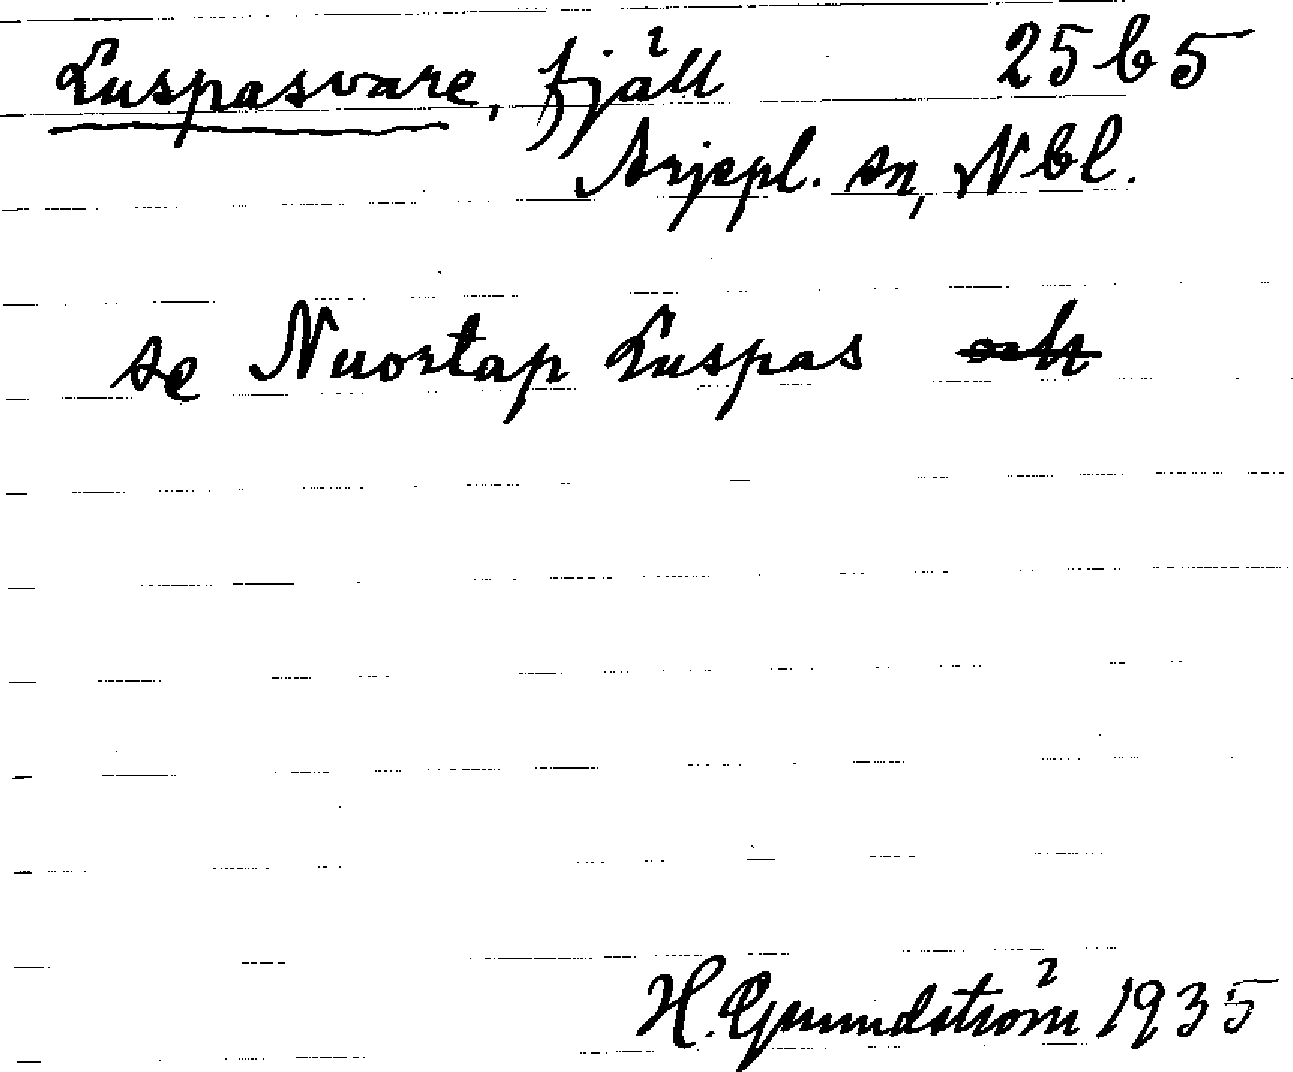 Luspasvare, fjäll 25 b 5
Arjepl. sn, Nbl.
se Nuortap Luspas och
H. Grundström 1935